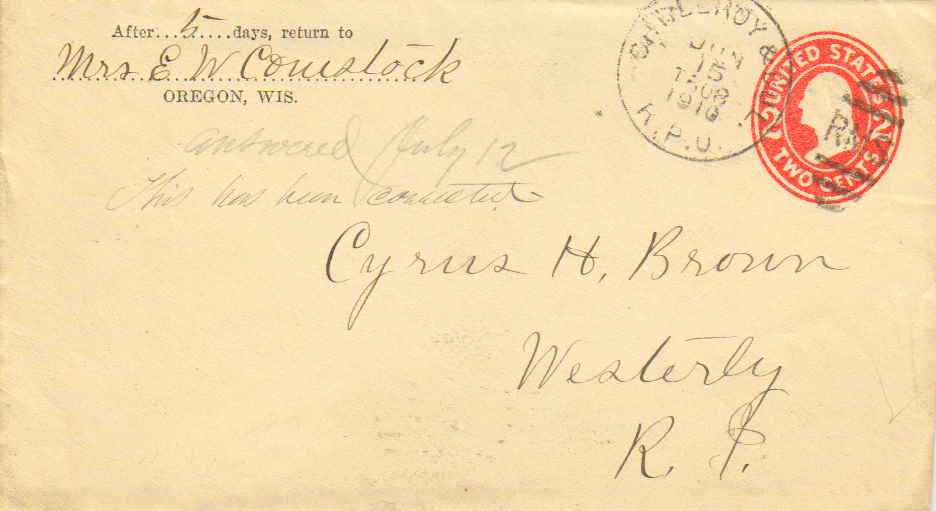 After...5....days, return to
Mrs E W Comstock
OREGON, WIS.
answered July 12
This has been corrected
Cyrus H. Brown
Westerly
R. I.
JUN
15
1910
R.P.O.
UNITED STATES
2 2
TWO CENTS
RMS